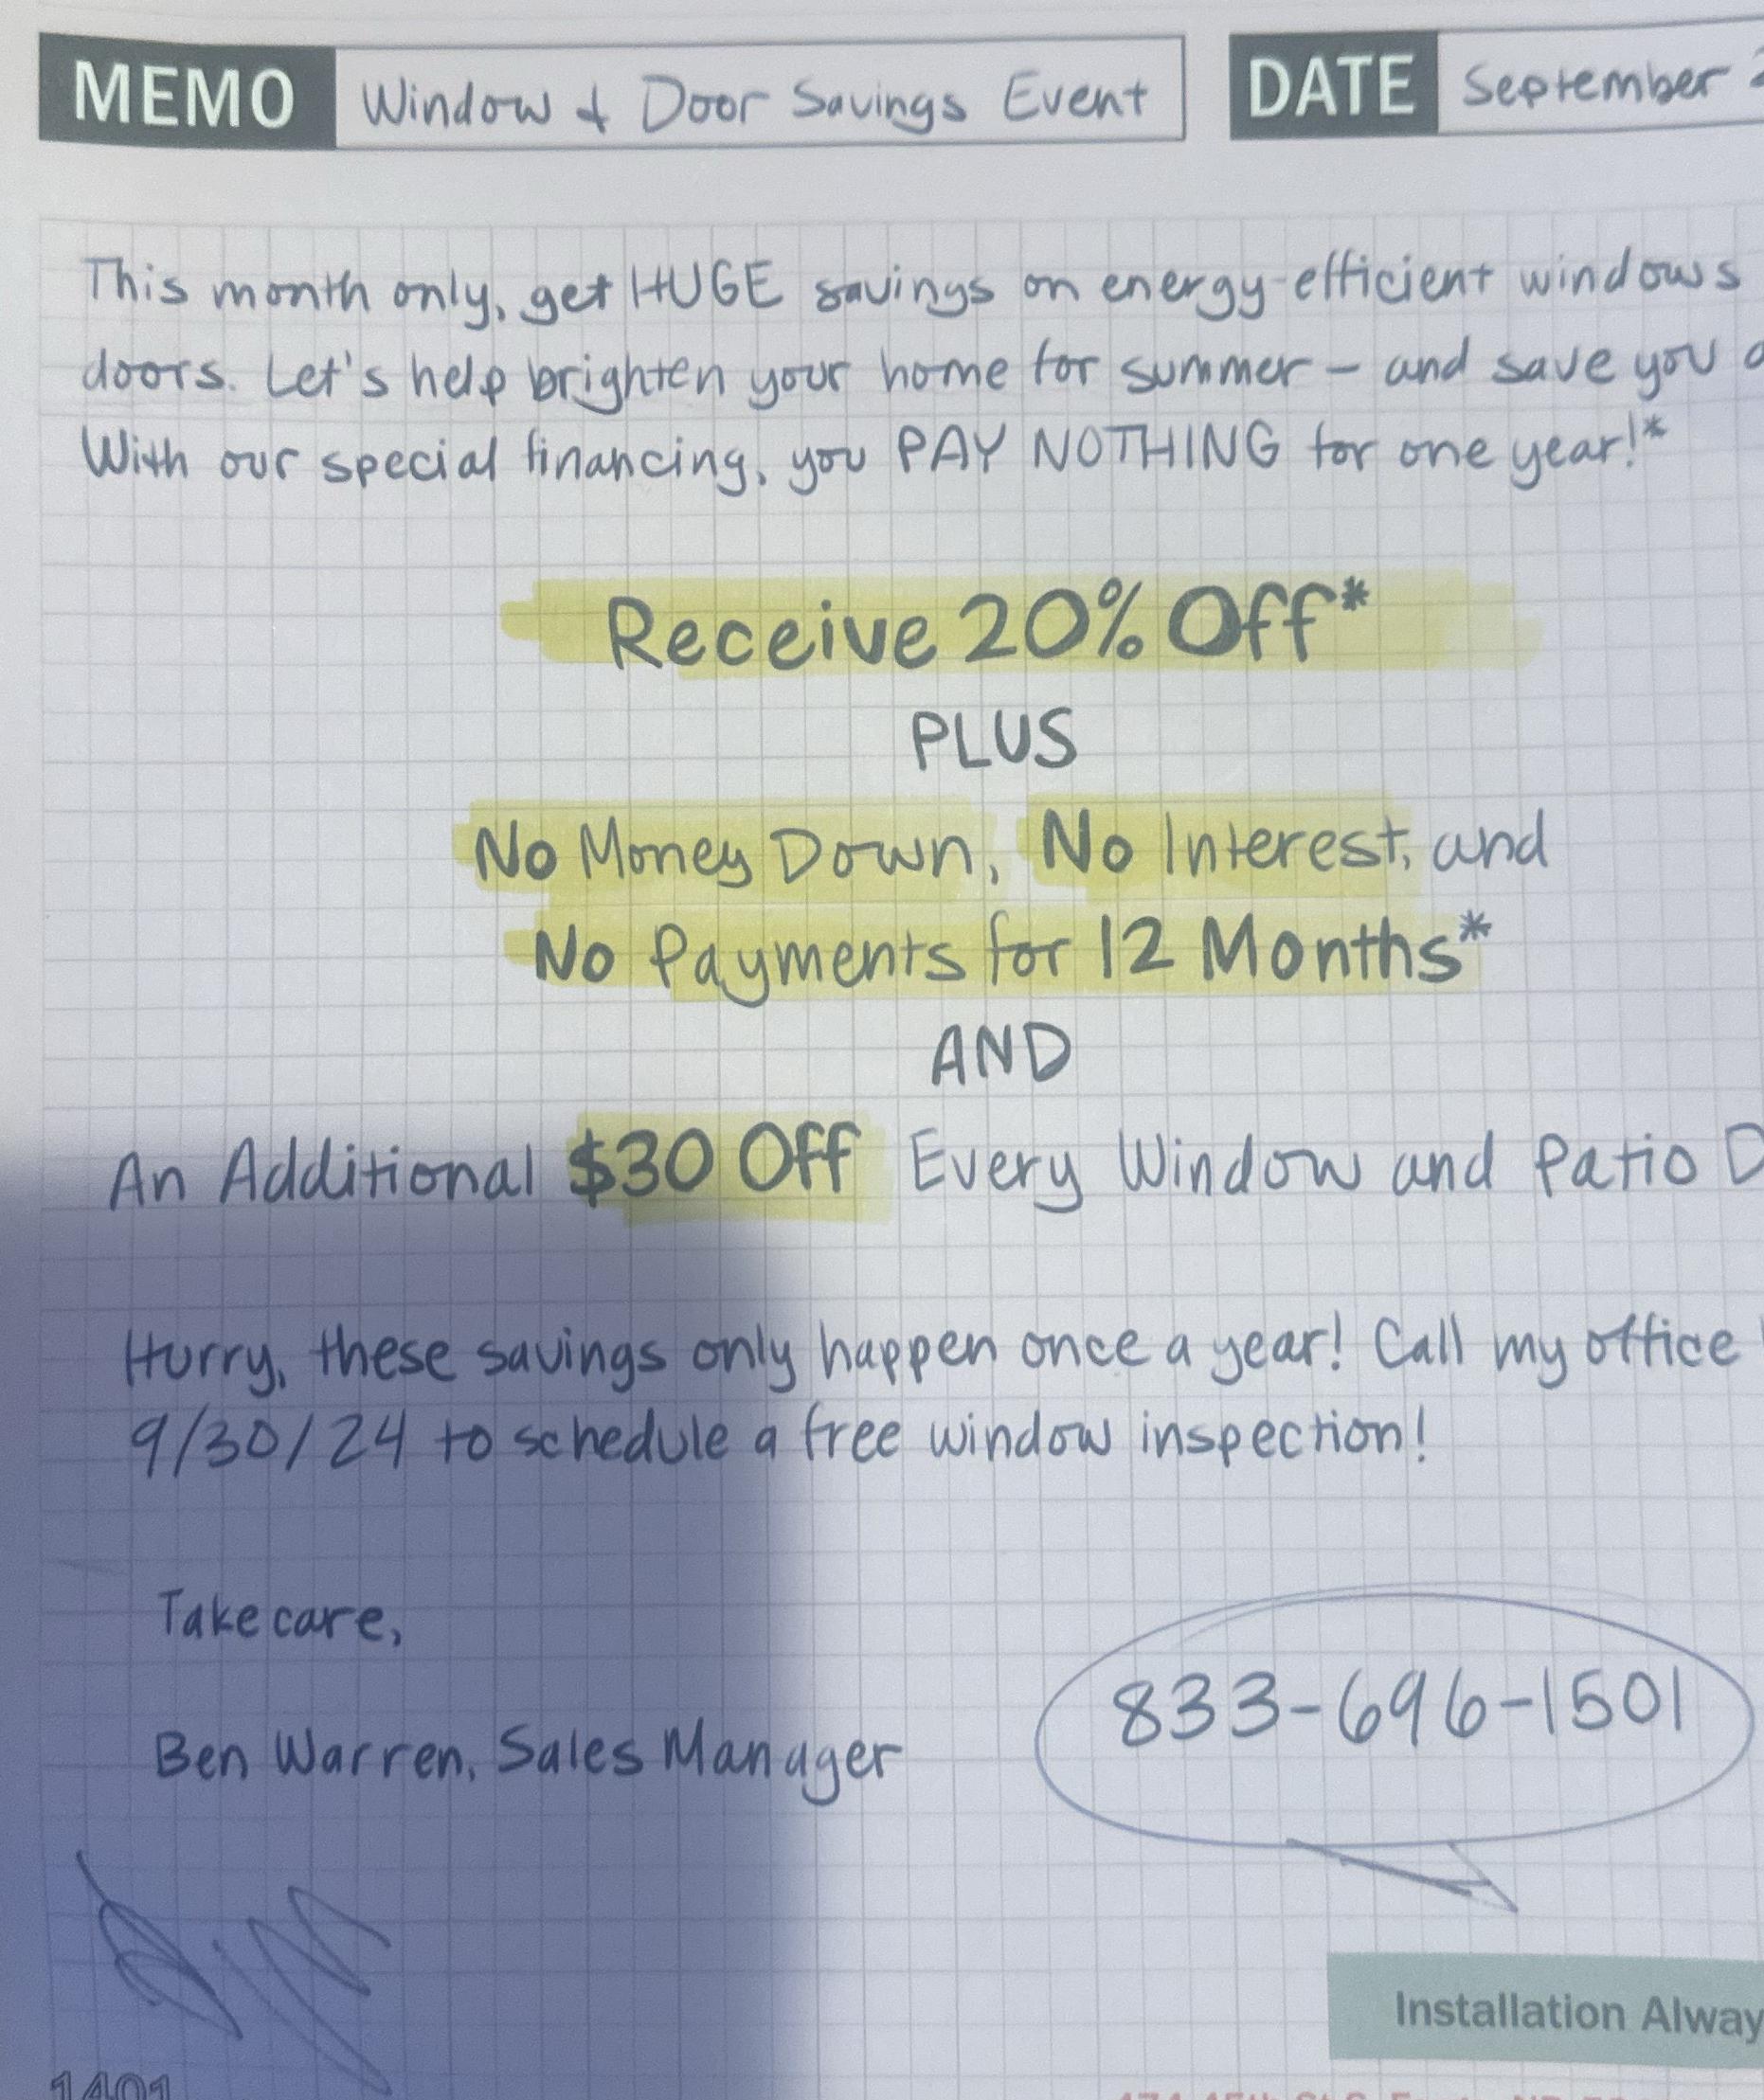 MEMO Window & Door Savings Event DATE September
This month only, get HUGE savings on energy-efficient windows
doors. Let's help brighten your home for summer – and save you
With our special financing, you PAY NOTHING for one year!*
Receive 20% Off*
PLUS
No Money Down, No Interest, and
No Payments for 12 Months*
AND
An Additional $30 Off Every Window and Patio D
Hurry, these savings only happen once a year! Call my office
9/30/24 to schedule a free window inspection!
Take care,
Ben Warren, Sales Manager
833-696-1501
Installation Alway
1401